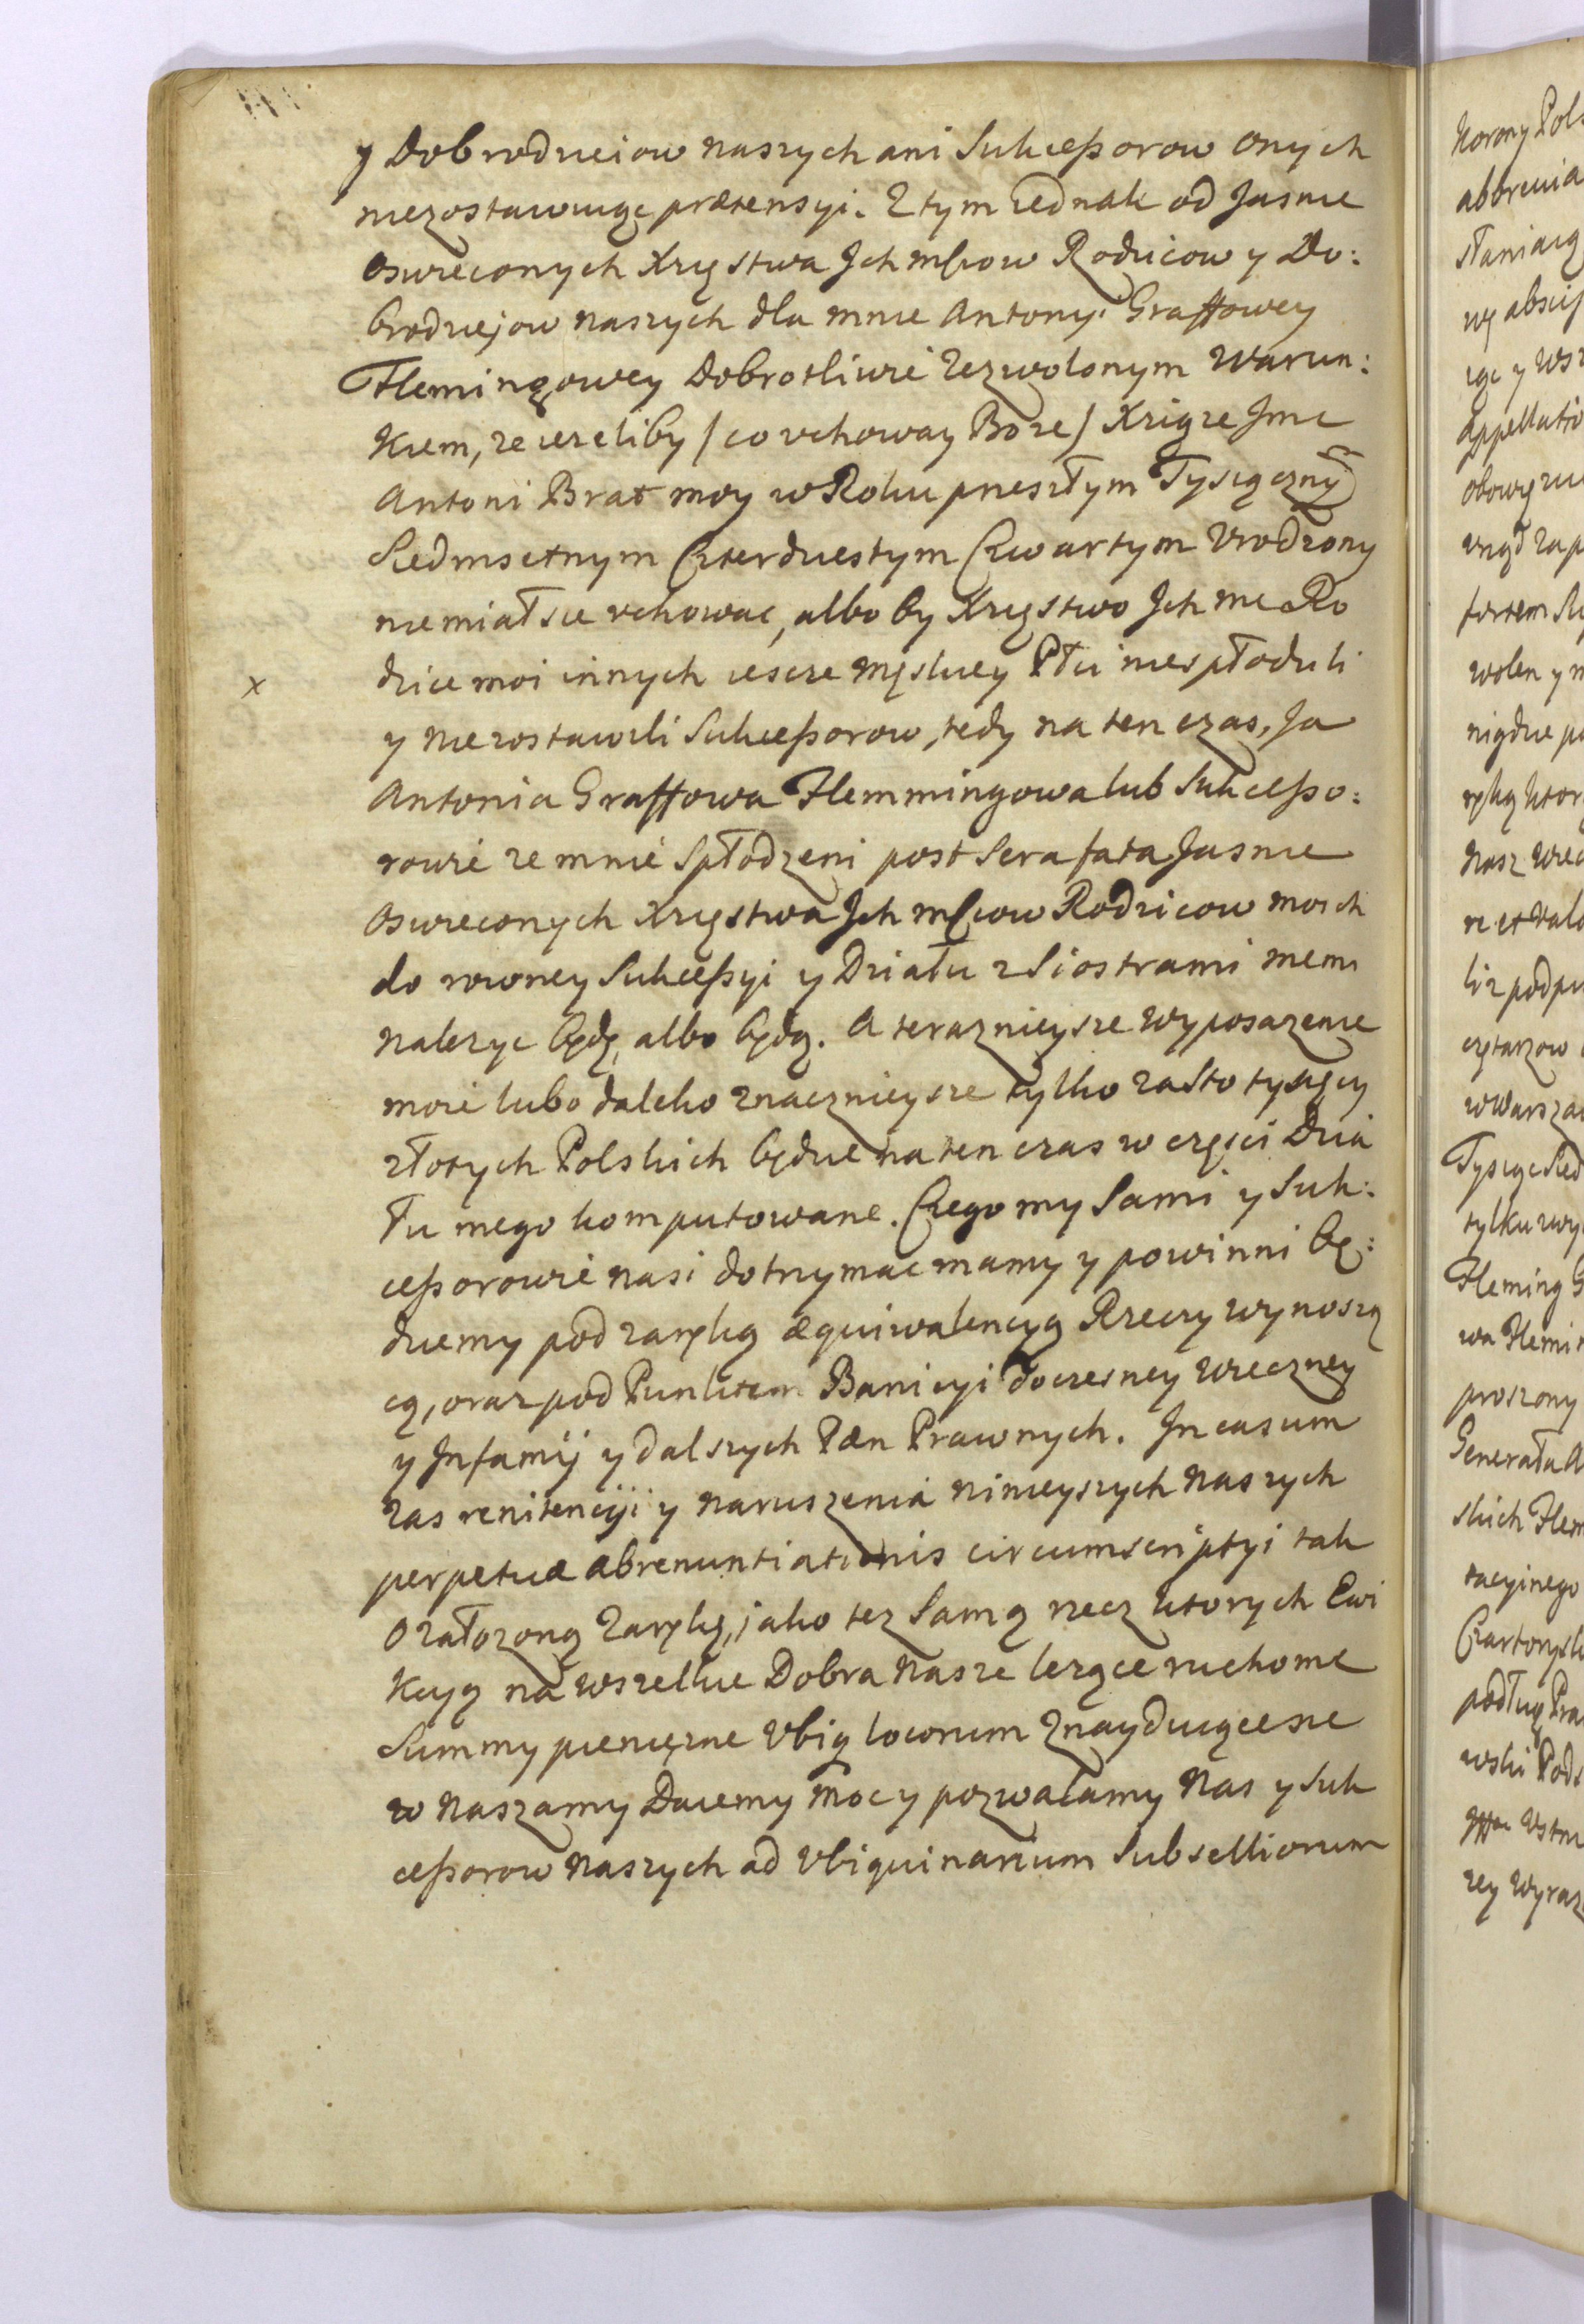 y Dobrodzieiow naszych ani Sukceßorow onych
niezostawuiąc prætensyi. Z tym iednak od Jasnie
Oswieconych Xięstwa Ich mściow Rodzicow y Do:
brodziejow naszych dla mnie Antonyi Graffowey
Flemingowey Dobrotliwie Zezwolonym Warun:
kiem, ze iezeliby / co vchoway Boze / Xsiąze Jmc
Antoni Brat moy w Roku przeszłym Tysiącznym
Siedmsetnym Czterdziestym Czwartym Vrodzony
nie miał sie vchowac, albo by Xięstwo Ich mc Ro
dzice moi innych iescze męskiey Płci niespłodzili
y niezostawili Sukceßorow, tedy na ten czas, Ja
Antonia Graffowa Flemmingowa lub Sukceßo:
rowie ze mnie Spłodzeni post sera fata Jasnie
Oswieconych Xięstwa Ich mściow Rodzicow moich
do rowney Sukceßyi y Działu z Siostrami memi
nalezyc będę, albo będą. A teraznieysze wyposazenie
moie lubo daleko znacznieysze tylko za Sto tysięcy
złotych Polskich będzie na ten czas w części Dzia
łu mego komputowane. Czego my Sami y Suk:
ceßorowie nasi dotrzymac mamy y powinni bę:
dziemy pod zaręką æquiwalencyą Rzeczy wynoszą
cą, oraz pod Punktem Banicyi doczesney wieczney
y Infamij y dalszych Pæn Prawnych. In casum
zas renitencyi y naruszenia ninieyszych naszych
perpetuæ abrenuntiationis circumscriptyi tak
o załozoną Zarękę, jako tez Samą rzecz ktorych Ewi
kcyą na wszelkie Dobra nasze lezące ruchome
Summy pienięzne Vbiq locorum znayduiące sie
w naszamy Daiemy moc y pozwalamy Nas y Suk
ceßorow naszych ad Vbiquinarium Subselliorum
x